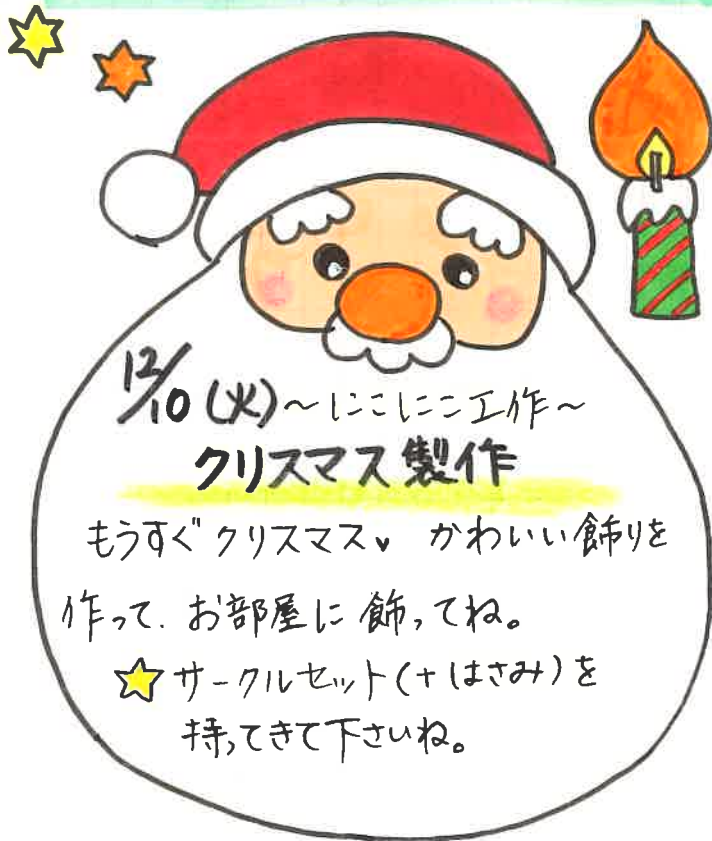 12/10(火)~にこにこ工作~
クリスマス製作
もうすぐクリスマス♥ かわいい飾りを
作って、お部屋に飾ってね。
☆サークルセット(+はさみ)を
持ってきて下さいね。